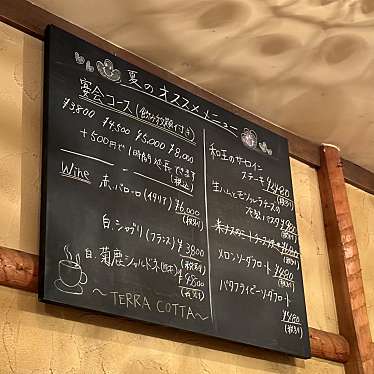 夏のオススメメニュー
宴会コース(飲み放題付き)
¥3,800 ¥4,500 ¥5,000 ¥8,000
+500円で1時間延長できます
(税込)
Wine
赤.バローロ(イタリア)
¥6,000
(税別)
白.シャブリ(フランス) ¥3,800
(税別)
白.菊鹿シャルドネ(熊本)
¥4,500
(税別)
~TERRA COTTA~
和王のサーロイン
ステーキ
(税別)
生ハムとモッツァレラチーズの
冷製パスタ
(税別)
メロンソーダフロート
(税別)
バタフライピーソーダフロート
(税別)